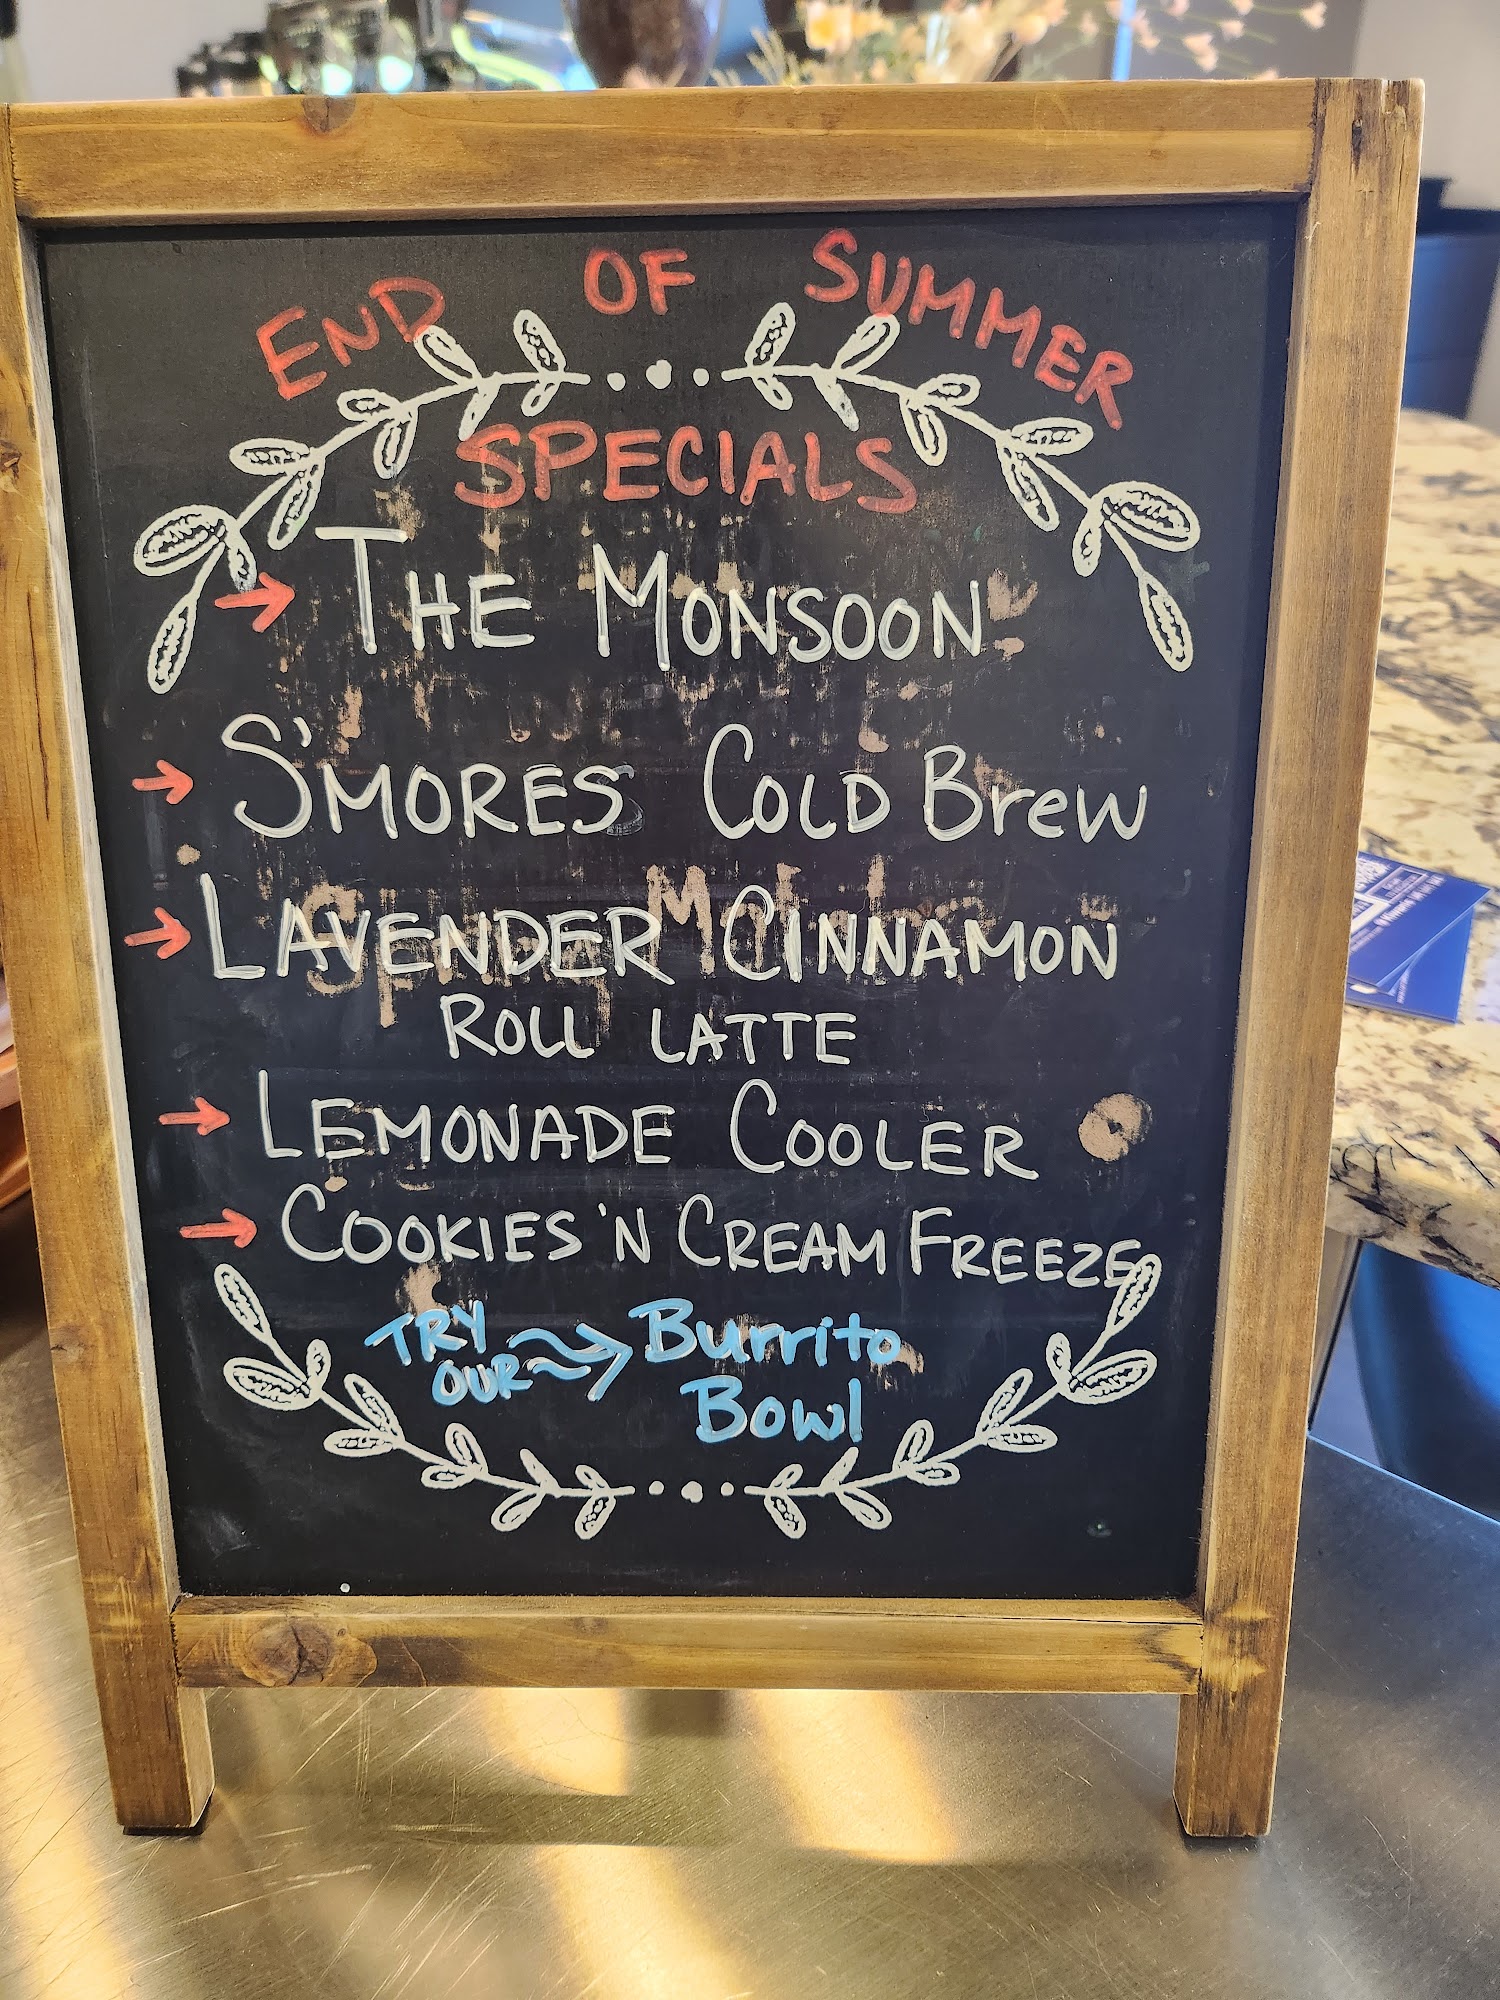 END OF SUMMER
SPECIALS
→ THE MONSOON
→ S'MORES COLD BREW
→ LAVENDER CINNAMON
ROLL LATTE
→ LEMONADE COOLER
→ COOKIES 'N CREAM FREEZE
TRY OUR → Burrito
Bowl